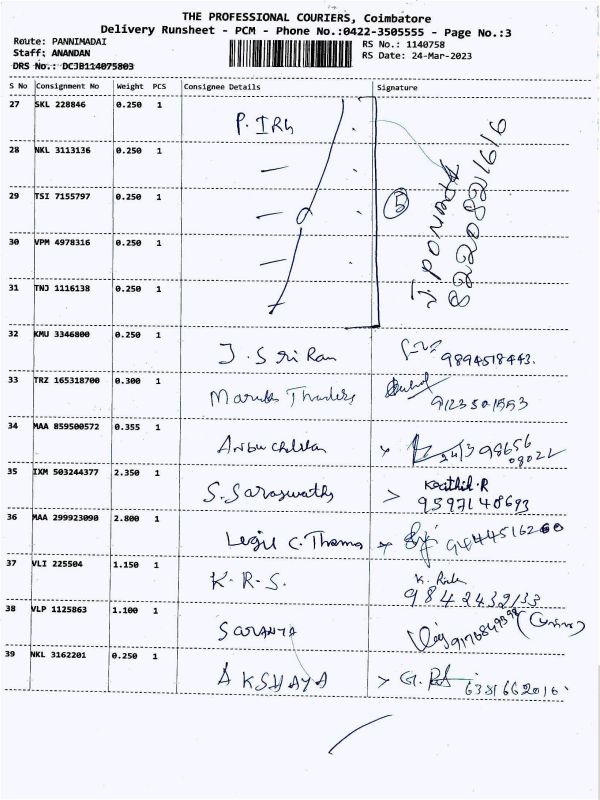 THE PROFESSIONAL COURIERS, Coimbatore
Delivery Runsheet - PCM - Phone No.:0422-3505555 - Page No.:3
Route: PANNIMADAI
RS No.: 1140758
Staff: ANANDAN
RS Date: 24-Mar-2023
DRS No.: DCJB114075803
S No Consignment No Weight PCS Consignee Details Signature
27 SKL 228846 0.250 1
28 NKL 3113136 0.250 1
29 TSI 7155797 0.250 1
30 VPM 4978316 0.250 1
31 TNJ 1116138 0.250 1
5
J. PONIATH
8220821616
32 KMU 3346800 0.250 1 J. Sri Ram 9894518443.
33 TRZ 165318700 0.300 1
34 MAA 859500572 0.355 1
35 IXM 503244377 2.350 1 S. Saraswathy > Karthik.R
9597148693
36 MAA 299923090 2.800 1 C. Thomas
37 VLI 225504 1.150 1 K.R.S.
9842432133
38 VLP 1125863 1.100 1 SARANYA
39 NKL 3162201 0.250 1 AKSHAYA > 6381662016